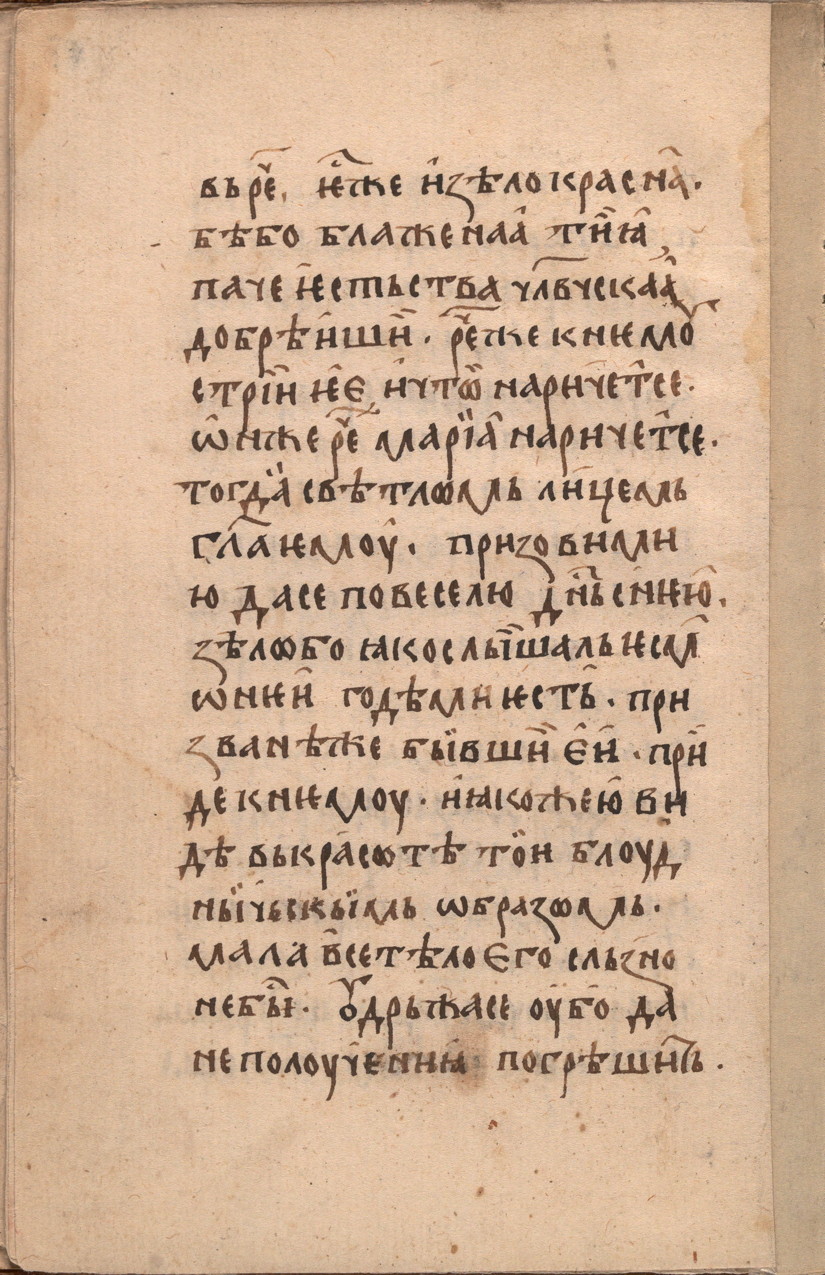 въ рⷱ҇е, ѥ҆́же и҆ ꙃѣло красна̀.
бѣ бо блаженаа҆ тꙋ̀ ꙗ҆̀
паче ѥ҆стьства чл҃бчскаа҆
добрѣи҆ши̏. рⷱ҇е же к нѥмоу
стрі̏и ѥ҆Є, и҆ что̏ нариче́тсе.
ѡ҆н же рⷱ҇е марїа҆ нариче́тсе.
тогда̏ свѣтлѡмь ли́цемь
гл҃а ѥмоу̀. призови ми
ю да се повеселю дн҃ьс нѥю̀.
ꙃѣлѡ бо ꙗко слы́шаль ѥсм̏
ѡ нѥи̏ годѣ ми ѥсть̀. при
званѣ же бы́вши̏ Є҆и̏. прїи
де к нѥмоу. и҆ ꙗко же ю̀ ви
дѣ вь красѡтѣ то̏и блоуд
ны́чьскы́мь ѡбразѡмь.
мала в̾се тѣло Єго слъзно
не бы̏. Ꙋ҆дрьжа се оу҆бо да
не полоуче́ниꙗ̀ погрѣши́ть.